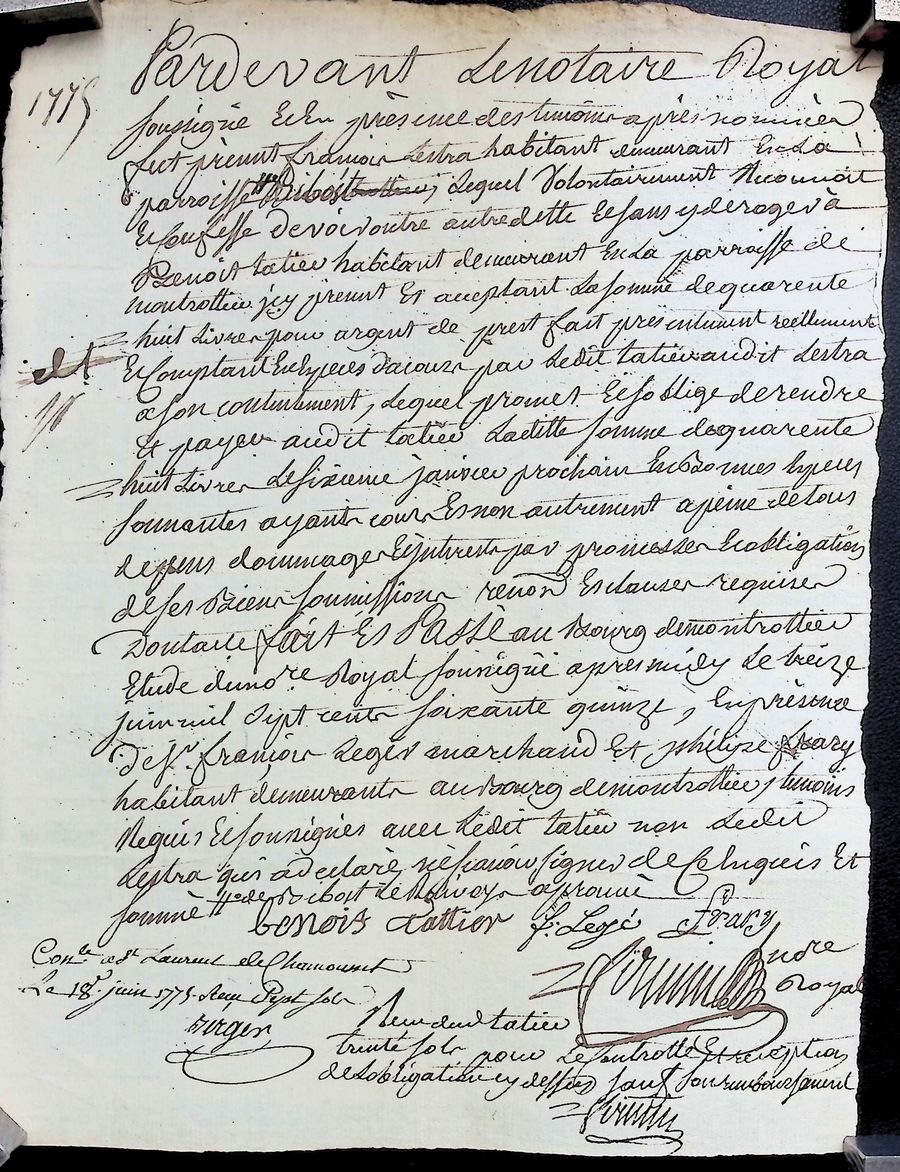 Pardevant Le notaire Royal
1775
soussigné Et En présence des temoins après nommées
fut présent françois Lestra habitant demeurant En La
parroisse Lequel Volontairement Reconnoit
Et Confesse devoir outre autre dette Et sans y deroger à
Benoit tatier habitant demeurant En La parroisse de
montrottier jcy present Et acceptant La somme de quarente
huit Livres pour argent de prest fait présentement réellement
Et Comptant En Especes par Ledit tatier audit Lestra
a son contentement, Lequel promet Et soblige de rendre
Et payer audit tatier Laditte somme de quarente
huit Livres Le sixieme janvier prochain En Bonnes Especes
sonnantes ayants cours Et non autrement a peine de tous
depens dommages Et jnterests par promesses Et obligation
de ses Biens soumissions renon Et clauses requises
Dont acte fait Et Passé au Bourg de montrottier
Etude du nore Royal soussigné apres midy Le treize
juin mil sept cents soixante quinze, En présence
de Sr. françois Leger marchand Et philipe frary
habitant demeurants au Bourg de montrottier, temoins
Requis Et soussignés avec Ledit tatier non Ledit
Lestra qui a declaré ne sçavoir signer de Ce Enquis Et
sommé de Ribost Le Renvoy approuvé
benoit tattier f. Legé frary
Conlle a St Laurent de Chamousset
nore
Royal
Le 18e juin 1775 Reçu sept sols
Reçu dud tatier
trente sols pour Le Controlle Et reception
de Lobligation cy dessus sauf son remboursement